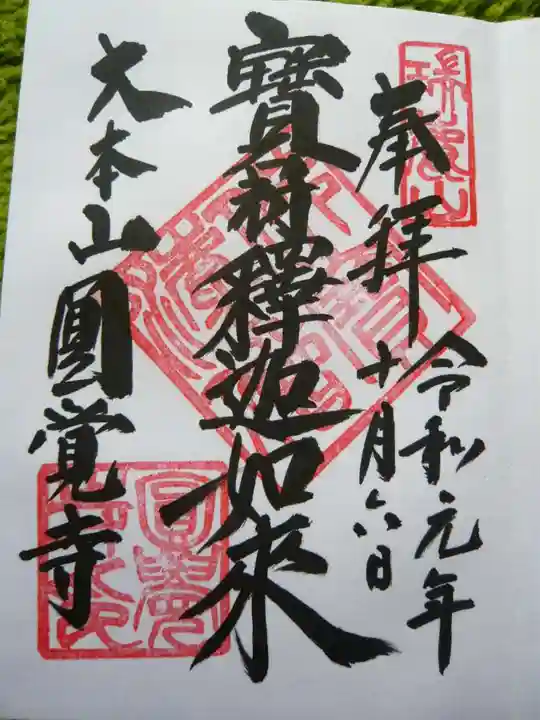 奉拜
令和元年
十月六日
寶冠釋迦如来
大本山圓覚寺
瑞鹿山